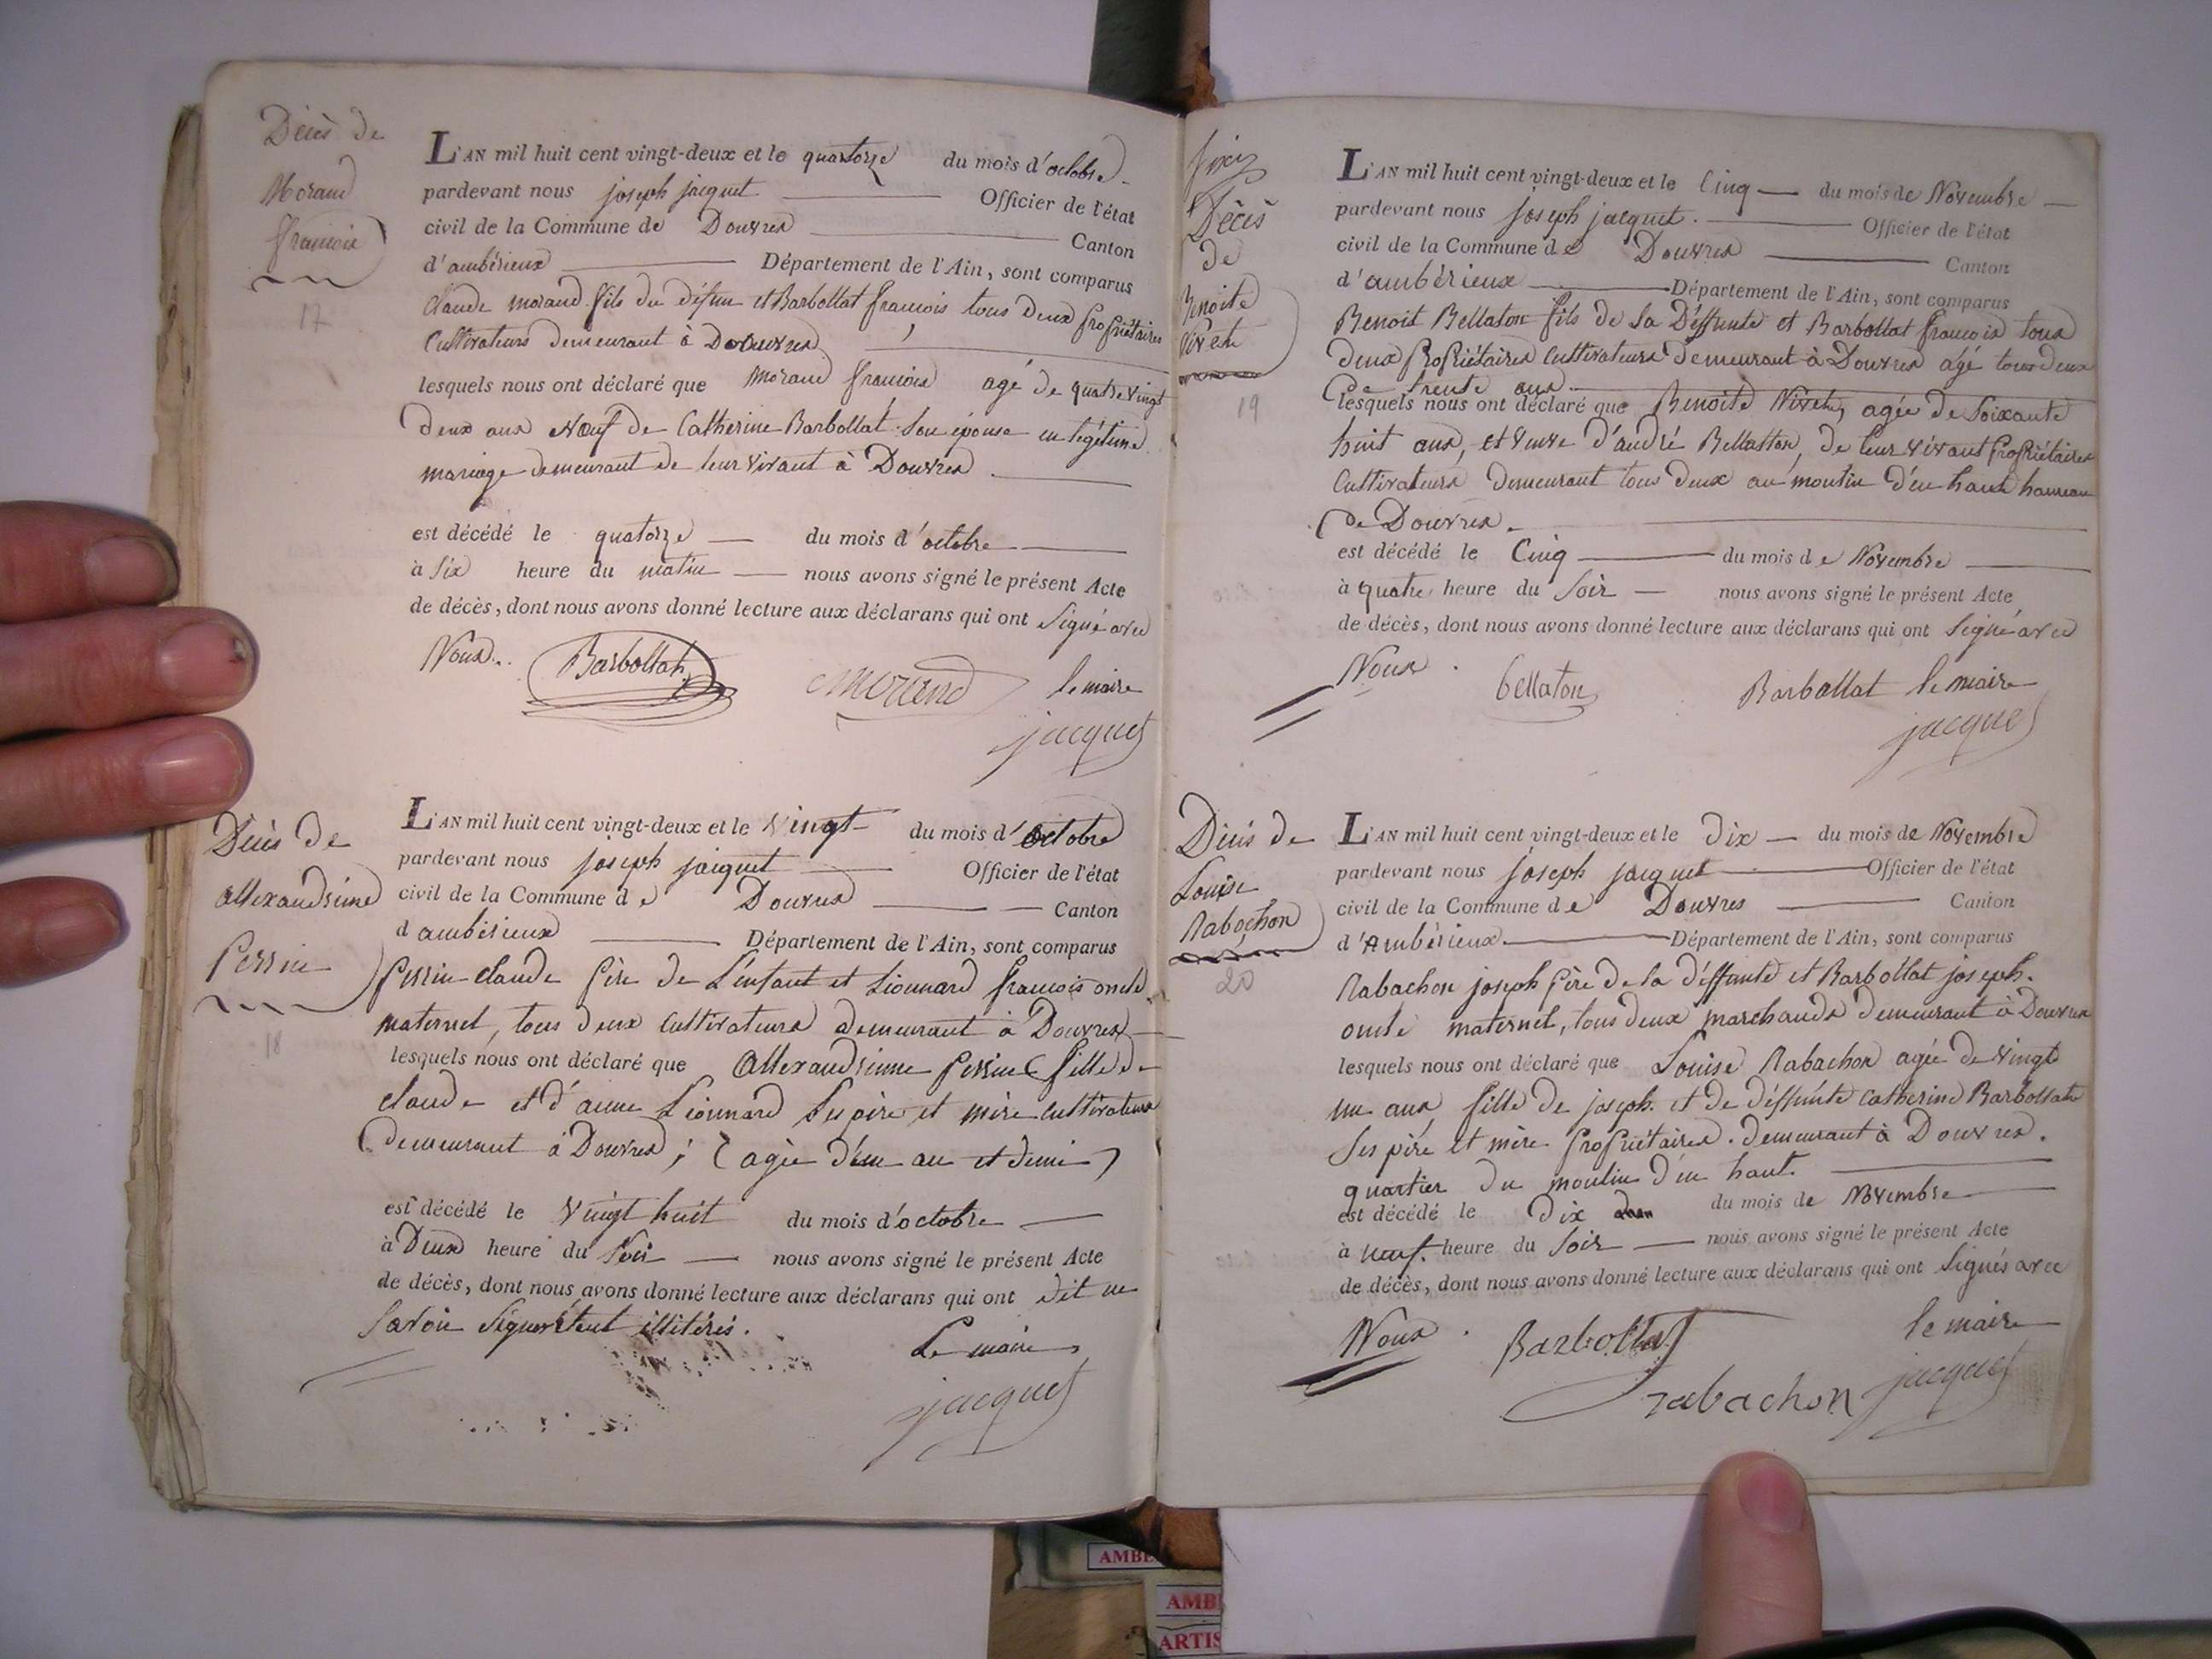 Décès de
Morand
françois
17
L'AN mil huit cent vingt-deux et le quatorze du mois d'octobre
pardevant nous joseph jacquet Officier de l'état
civil de la Commune de Douvres Canton
d'ambérieux Département de l'Ain, sont comparus
Claude morand fils du défun et Barbollat françois tous deux propriétaires
Cultivateurs demeurant à Douvres
lesquels nous ont déclaré que Morand françois agé de quatre vingt
deux ans veuf de Catherine Barbollat son épouse en légitime
mariage demeurant de leur vivant à Douvres
est décédé le quatorze du mois d'octobre
à six heure du matin nous avons signé le présent Acte
de décès, dont nous avons donné lecture aux déclarans qui ont signé avec
Nous. Barbollat morand le maire
jacquet
Décès de
allexandrine
Perrin
18
L'AN mil huit cent vingt-deux et le vingt du mois d'octobre
pardevant nous joseph jacquet Officier de l'état
civil de la Commune de Douvres Canton
d'ambérieux Département de l'Ain, sont comparus
Perrin claude père de L'enfant et Lionnard françois oncle
maternel, tous deux cultivateurs demeurant à Douvres
lesquels nous ont déclaré que allexandrinne perrin fille de
claude et d'anne Lionnard ses père et mère cultivateurs
demeurant à Douvres; (agée d'un an et demi)
est décédé le vingt huit du mois d'octobre
à Deux heure du soir nous avons signé le présent Acte
de décès, dont nous avons donné lecture aux déclarans qui ont dit ne
savoir signer étant illitérés.
Le maire
jacquet
Décès
de
Benoite
Nivet
19
L'AN mil huit cent vingt-deux et le Cinq du mois de Novembre
pardevant nous joseph jacquet. Officier de l'état
civil de la Commune de Douvres Canton
d'ambérieux Département de l'Ain, sont comparus
Benoit Bellaton fils de la Déffunte et Barbollat françois tous
deux propriétaires cultivateurs demeurant à Douvres agé tous deux
de trente ans
lesquels nous ont déclaré que Benoite Nivet, agée de soixante
huit ans, et veuve d'andré Bellatton, de leur vivant propriétaires
Cultivateurs demeurant tous deux au moulin d'en haut hameau
de Douvres.
est décédé le Cinq du mois de Novembre
à quatre heure du soir nous avons signé le présent Acte
de décès, dont nous avons donné lecture aux déclarans qui ont signé avec
Nous. bellaton Barbollat le maire
jacquet
Décès de
Louise
Rabachon
20
L'AN mil huit cent vingt-deux et le dix du mois de Novembre
pardevant nous joseph jacquet Officier de l'état
civil de la Commune de Douvres Canton
d'Ambérieux Département de l'Ain, sont comparus
Rabachon joseph père de la déffunte et Barbollat joseph.
oncle maternel, tous deux marchands demeurant à Douvres
lesquels nous ont déclaré que Louise Rabachon agée de vingt
un ans, fille de joseph. et de déffunte catherine Barbollat
ses père et mère propriétaires. demeurant à Douvres.
quartier du moulin d'en haut.
est décédé le dix du mois de Novembre
à neuf. heure du soir nous avons signé le présent Acte
de décès, dont nous avons donné lecture aux déclarans qui ont signés avec
Nous. Barbollat le maire
rabachon jacquet
AMBE
AMB
ARTIS